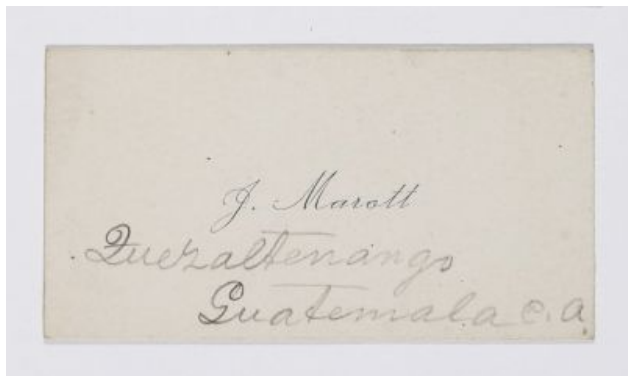 J. Marott
Quezaltenango
Guatemala c. a